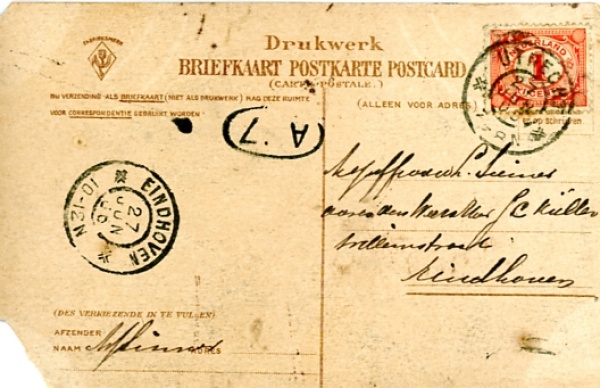 FABRIEKSMERK
Drukwerk
BRIEFKAART POSTKARTE POSTCARD
(CARTE POSTALE.)
BIJ VERZENDING ALS BRIEFKAART (NIET ALS DRUKWERK) MAG DEZE RUIMTE
VOOR CORRESPONDENTIE GEBRUIKT WORDEN
(ALLEEN VOOR ADRES)
NEDERLAND
1
CENT
UTRECHT
A 7
EINDHOVEN
27
JUN
06
10-12N
Mejuffrouw
J C Müller
Willemstraat
Eindhoven
(DES VERKIEZENDE IN TE VULLEN)
AFZENDER
NAAM
ADRES